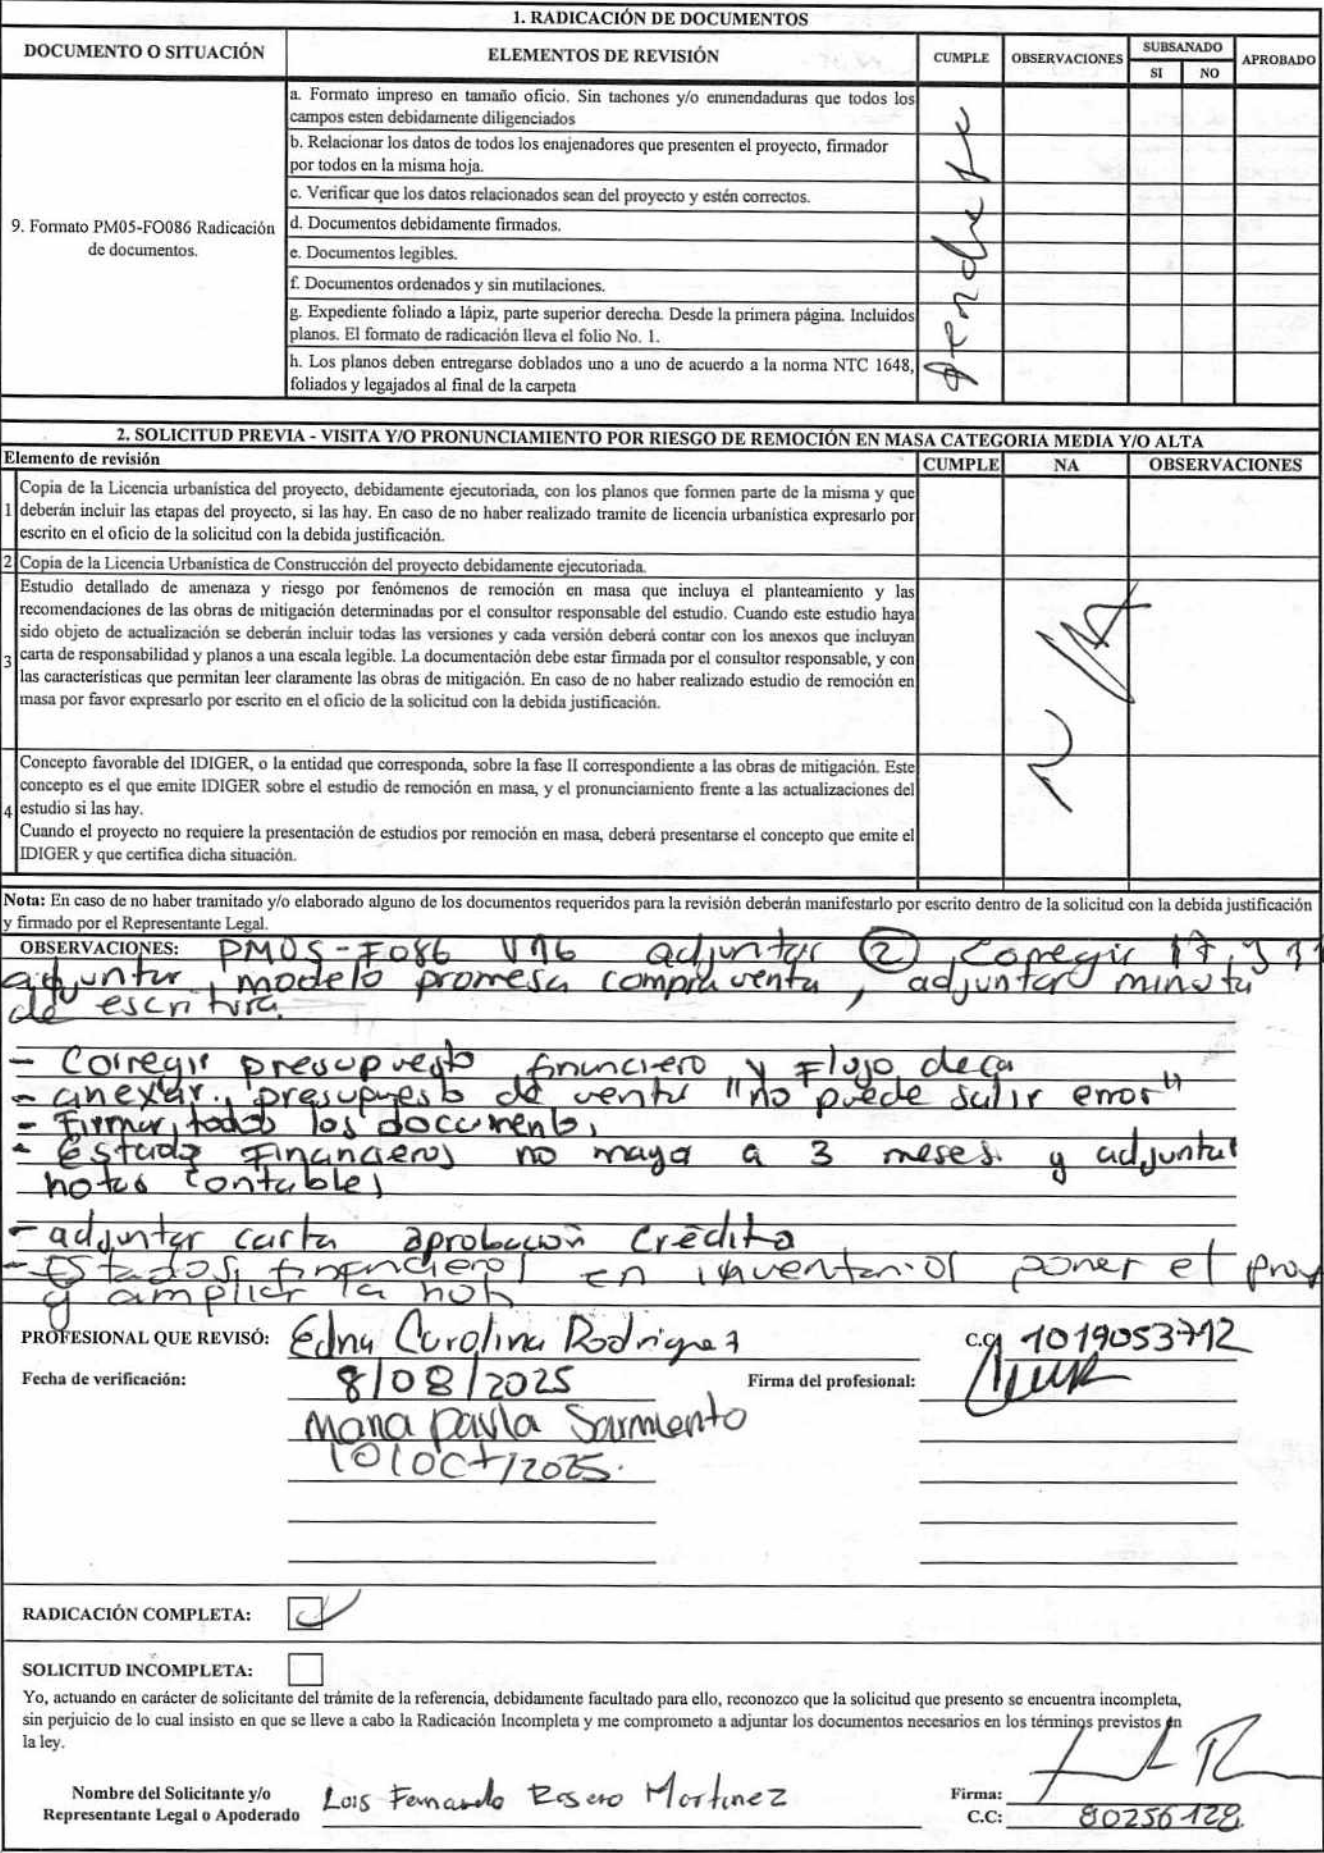 1. RADICACIÓN DE DOCUMENTOS
DOCUMENTO O SITUACIÓN
ELEMENTOS DE REVISIÓN
CUMPLE
OBSERVACIONES
SUBSANADO
SI
NO
APROBADO
9. Formato PM05-FO086 Radicación
de documentos.
a. Formato impreso en tamaño oficio. Sin tachones y/o enmendaduras que todos los
campos esten debidamente diligenciados
b. Relacionar los datos de todos los enajenadores que presenten el proyecto, firmador
por todos en la misma hoja.
c. Verificar que los datos relacionados sean del proyecto y estén correctos.
d. Documentos debidamente firmados.
e. Documentos legibles.
f. Documentos ordenados y sin mutilaciones.
g. Expediente foliado a lápiz, parte superior derecha. Desde la primera página. Incluidos
planos. El formato de radicación lleva el folio No. 1.
h. Los planos deben entregarse doblados uno a uno de acuerdo a la norma NTC 1648,
foliados y legajados al final de la carpeta
2. SOLICITUD PREVIA - VISITA Y/O PRONUNCIAMIENTO POR RIESGO DE REMOCIÓN EN MASA CATEGORIA MEDIA Y/O ALTA
Elemento de revisión
CUMPLE
NA
OBSERVACIONES
1
Copia de la Licencia urbanística del proyecto, debidamente ejecutoriada, con los planos que formen parte de la misma y que
deberán incluir las etapas del proyecto, si las hay. En caso de no haber realizado tramite de licencia urbanística expresarlo por
escrito en el oficio de la solicitud con la debida justificación.
2 Copia de la Licencia Urbanística de Construcción del proyecto debidamente ejecutoriada.
3
Estudio detallado de amenaza y riesgo por fenómenos de remoción en masa que incluya el planteamiento y las
recomendaciones de las obras de mitigación determinadas por el consultor responsable del estudio. Cuando este estudio haya
sido objeto de actualización se deberán incluir todas las versiones y cada versión deberá contar con los anexos que incluyan
carta de responsabilidad y planos a una escala legible. La documentación debe estar firmada por el consultor responsable, y con
las características que permitan leer claramente las obras de mitigación. En caso de no haber realizado estudio de remoción en
masa por favor expresarlo por escrito en el oficio de la solicitud con la debida justificación.
NA
4
Concepto favorable del IDIGER, o la entidad que corresponda, sobre la fase II correspondiente a las obras de mitigación. Este
concepto es el que emite IDIGER sobre el estudio de remoción en masa, y el pronunciamiento frente a las actualizaciones del
estudio si las hay.
Cuando el proyecto no requiere la presentación de estudios por remoción en masa, deberá presentarse el concepto que emite el
IDIGER y que certifica dicha situación.
Nota: En caso de no haber tramitado y/o elaborado alguno de los documentos requeridos para la revisión deberán manifestarlo por escrito dentro de la solicitud con la debida justificación
y firmado por el Representante Legal.
OBSERVACIONES: PM05-F086 V16 adjuntar 2, Corregir 17, y 11
adjuntar, modelo promesa compra venta, adjuntar minuta
de escritura.
- Corregir presupuesto financiero y Flujo de ca
- anexar. presupuesto de venta "no puede salir error"
- Firmar todos los documento,
- Estado Financieros no mayo a 3 meses. y adjuntar
notas contables
- adjuntar carta aprobación Crédito
- Estados financieros en inventarios poner el proy
y ampliar la nota
PROFESIONAL QUE REVISÓ: Edna Carolina Rodriguez
c.c. 1019053712
Fecha de verificación: 8/08/2025
Firma del profesional:
Maria Paula Sarmiento
10/Oct/2025.
RADICACIÓN COMPLETA:
SOLICITUD INCOMPLETA:
Yo, actuando en carácter de solicitante del trámite de la referencia, debidamente facultado para ello, reconozco que la solicitud que presento se encuentra incompleta,
sin perjuicio de lo cual insisto en que se lleve a cabo la Radicación Incompleta y me comprometo a adjuntar los documentos necesarios en los términos previstos en
la ley.
Nombre del Solicitante y/o
Representante Legal o Apoderado
Luis Fernando Rosero Martinez
Firma:
C.C: 80256128